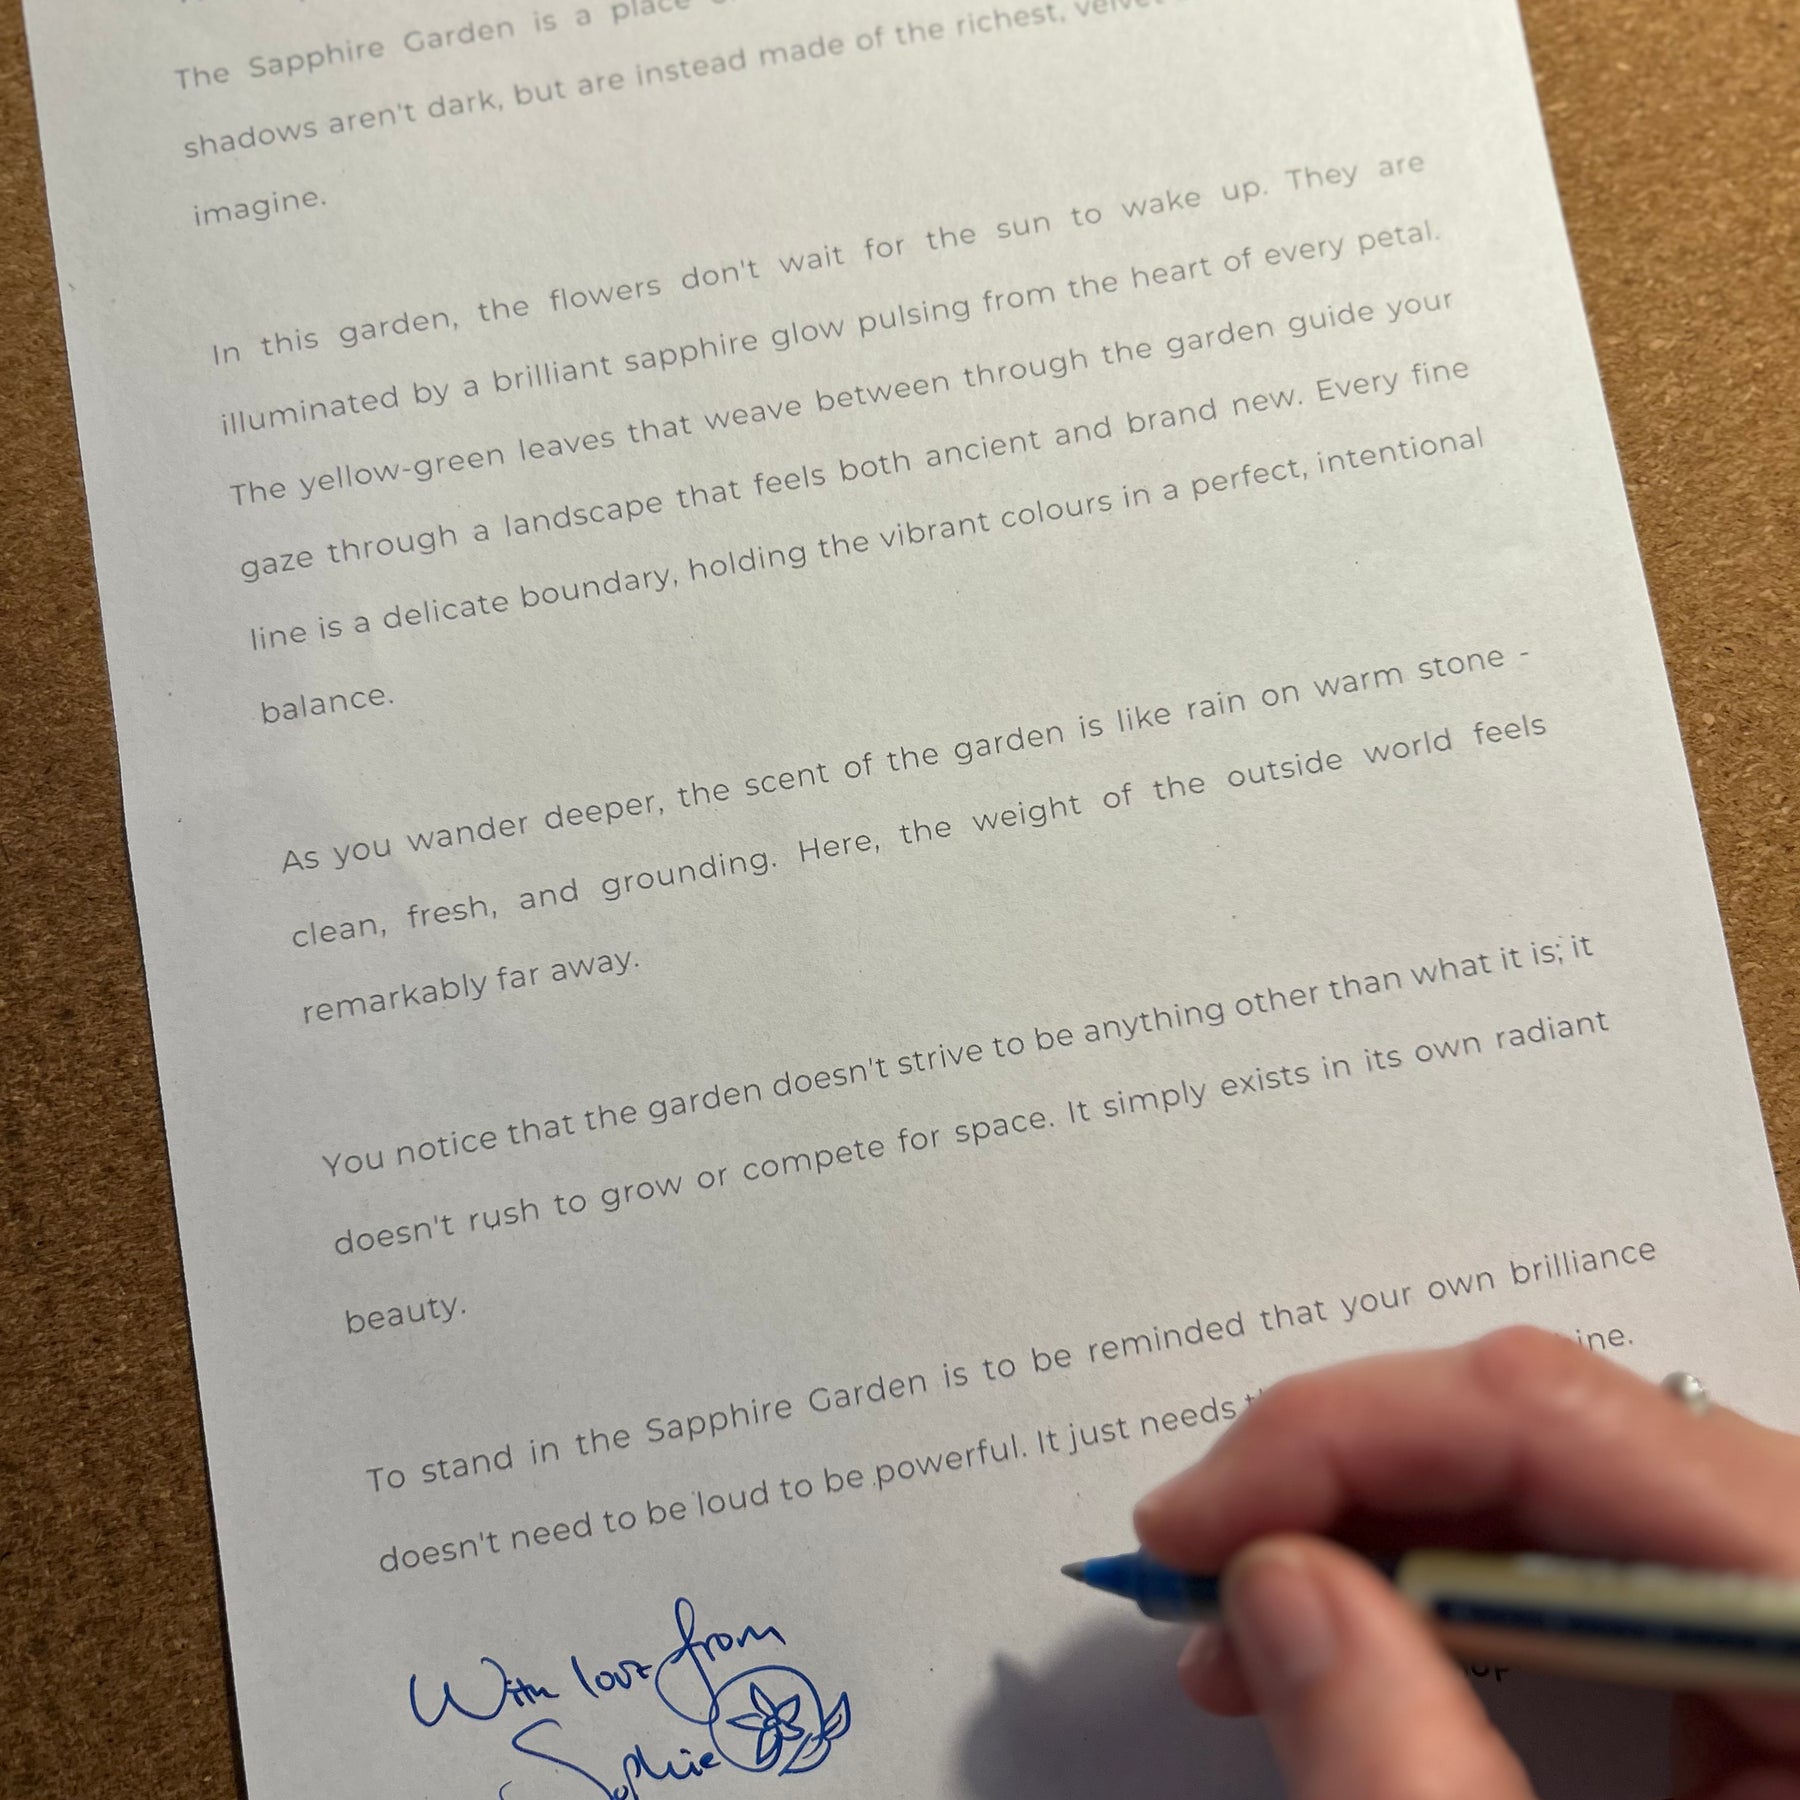 The Sapphire Garden is a place
shadows aren't dark, but are instead made of the richest, velvet
imagine.
In this garden, the flowers don't wait for the sun to wake up. They are
illuminated by a brilliant sapphire glow pulsing from the heart of every petal.
The yellow-green leaves that weave between through the garden guide your
gaze through a landscape that feels both ancient and brand new. Every fine
line is a delicate boundary, holding the vibrant colours in a perfect, intentional
balance.
As you wander deeper, the scent of the garden is like rain on warm stone -
clean, fresh, and grounding. Here, the weight of the outside world feels
remarkably far away.
You notice that the garden doesn't strive to be anything other than what it is; it
doesn't rush to grow or compete for space. It simply exists in its own radiant
beauty.
To stand in the Sapphire Garden is to be reminded that your own brilliance
doesn't need to be loud to be powerful. It just needs
With love from
Sophie